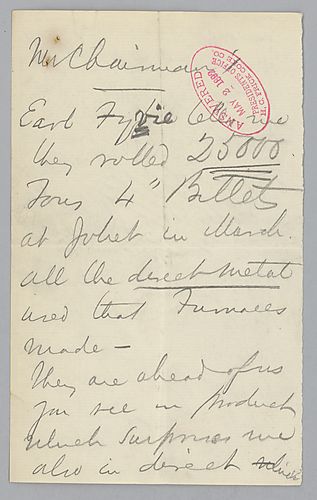 Mr Chairman
ANSWERED
MAY 2 189
PRESIDENT'S OFFICE
H. C. FRICK COKE CO.
Earl Fyvie tells me
they rolled 25000
Tons 4" Billets
at Joliet in March.
all the direct metal
used that Furnaces
made —
They are ahead of us
you see in product
which surprises me
also in direct